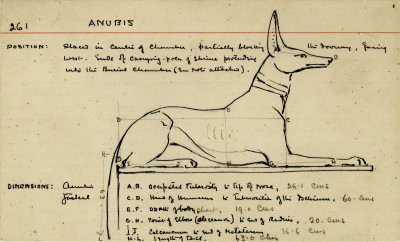 261 ANUBIS
POSITION: Placed in centre of Chamber, partially blocking the doorway, facing
west. Ends of carrying-poles of shrine protruding
into the Burial Chamber (See Note attached).
DIMENSIONS: Anubis A.B. Occipital Tuberosity to tip of nose, 26.1 cms
C.D. Head of Humerus to Tuberosities of the Ischium, 60. cms
E.F. Depth of body 19. cms
G.H. Point of Elbow (olecranon) to end of Radius, 20. cms
I.J. Calcaneum to end of Metatarsus 16.6 cms
K.L. length of Tail, 63.0 cms